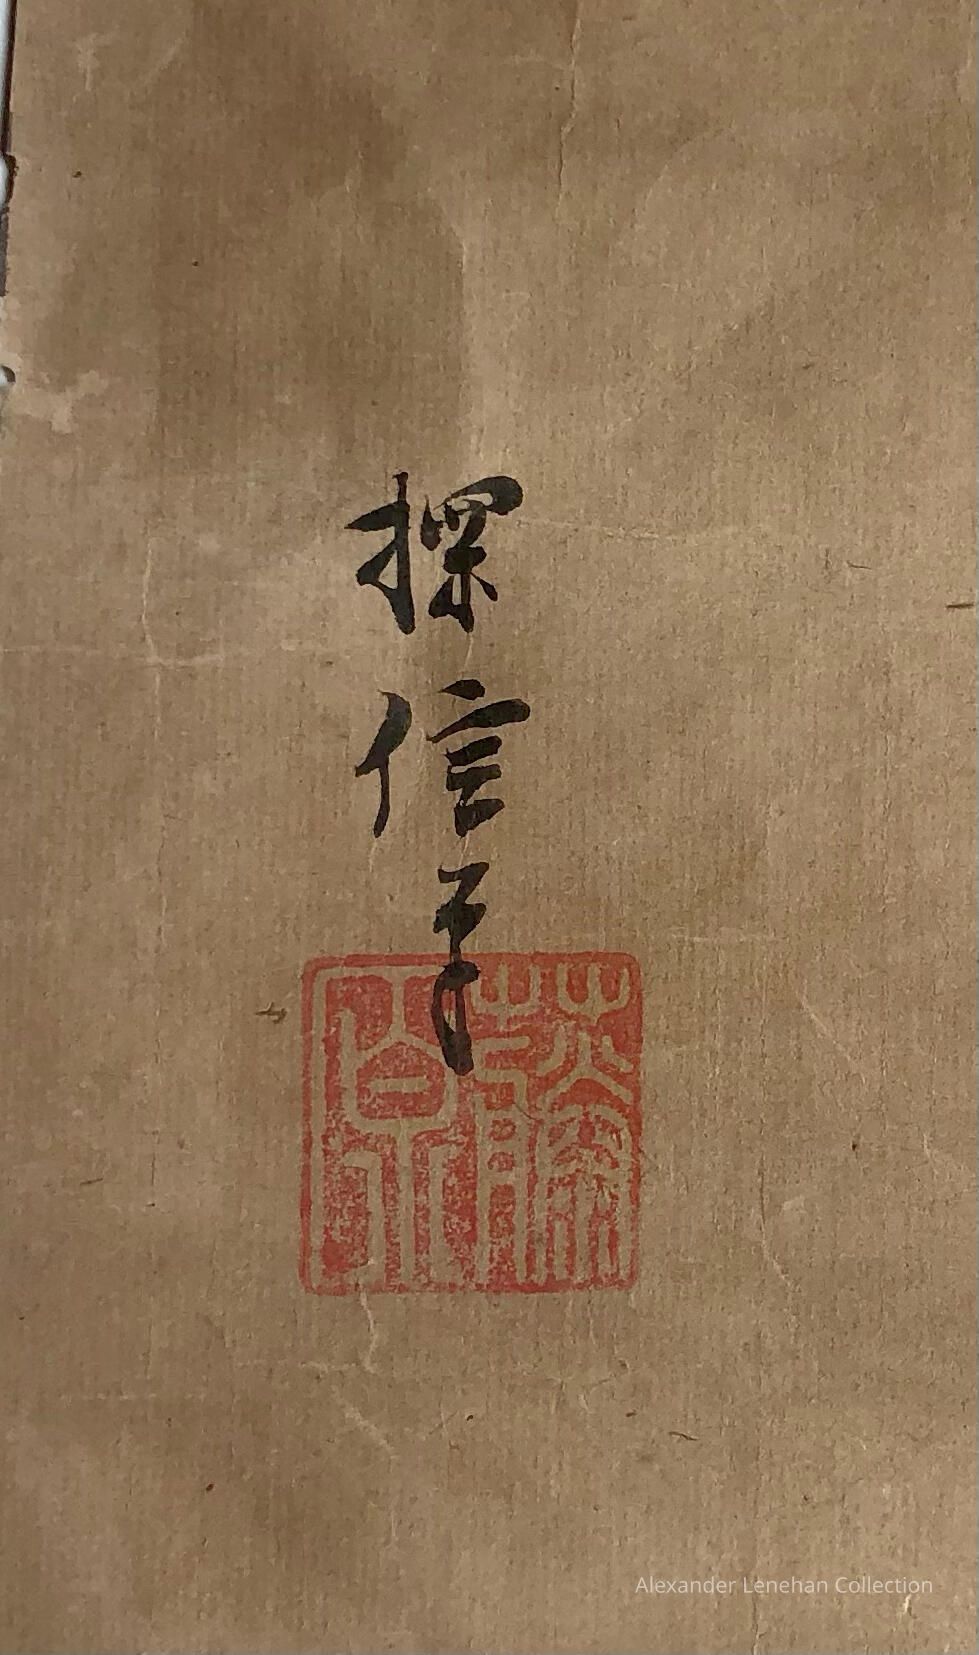 探信筆
藤
Alexander Lenehan Collection